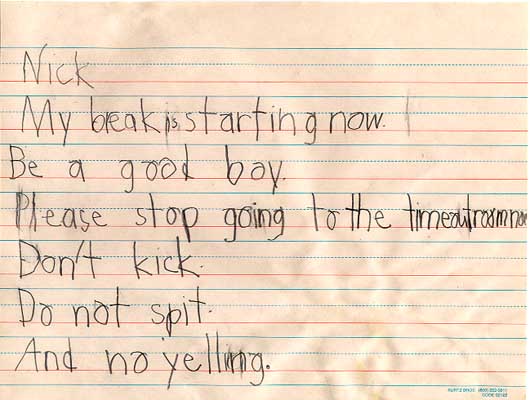 Nick
My break is starting now.
Be a good boy.
Please stop going to the timeoutroom now
Don't kick.
Do not spit.
And no yelling.